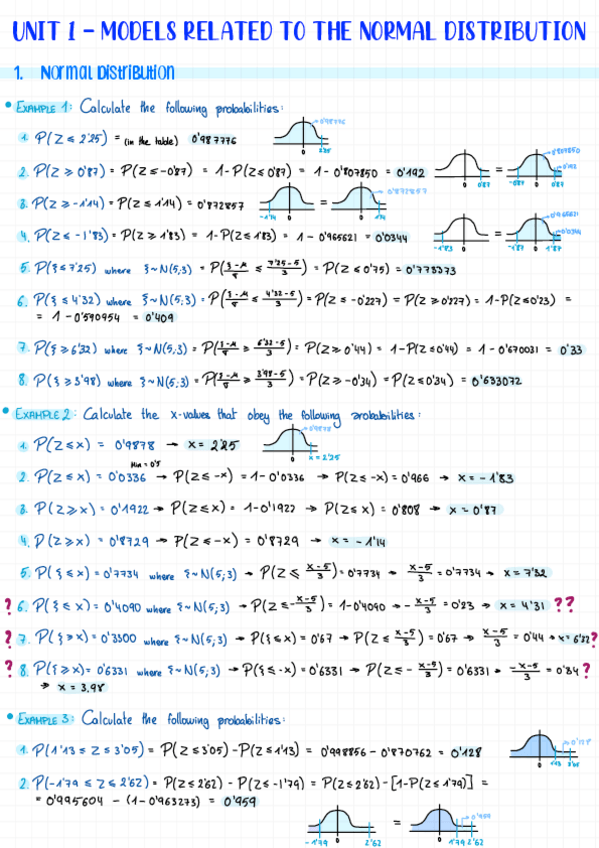 UNIT 1 – MODELS RELATED TO THE NORMAL DISTRIBUTION
1. Normal Distribution
• EXAMPLE 1: Calculate the following probabilities:
1. P(Z ≤ 2'25) = (in the table) 0'987776
2. P(Z ≥ 0'87) = P(Z ≤ -0'87) = 1-P(Z ≤ 0'87) = 1 - 0'807850 = 0'192
3. P(Z ≥ -1'14) = P(Z ≤ 1'14) = 0'872857
4. P(Z ≤ -1'83) = P(Z ≥ 1'83) = 1-P(Z ≤ 1'83) = 1 - 0'965621 = 0'0344
5. P(ξ ≤ 7'25) where ξ ~ N(5;3) = P(ξ-μ/σ ≤ 7'25-5/3) = P(Z ≤ 0'75) = 0'773373
6. P(ξ ≤ 4'32) where ξ ~ N(5;3) = P(ξ-μ/σ ≤ 4'32-5/3) = P(Z ≤ -0'227) = P(Z ≥ 0'227) = 1-P(Z ≤ 0'23) =
= 1 - 0'590954 = 0'409
7. P(ξ ≥ 6'32) where ξ ~ N(5;3) = P(ξ-μ/σ ≥ 6'32-5/3) = P(Z ≥ 0'44) = 1-P(Z ≤ 0'44) = 1 - 0'670031 = 0'33
8. P(ξ ≥ 3'98) where ξ ~ N(5;3) = P(ξ-μ/σ ≥ 3'98-5/3) = P(Z ≥ -0'34) = P(Z ≤ 0'34) = 0'633072
• EXAMPLE 2: Calculate the x-values that obey the following probabilities:
1. P(Z ≤ x) = 0'9878 → x = 2'25
Min = 0'5
2. P(Z ≤ x) = 0'0336 → P(Z ≤ -x) = 1-0'0336 → P(Z ≤ -x) = 0'966 → x = -1'83
3. P(Z ≥ x) = 0'1922 → P(Z ≤ x) = 1-0'1922 → P(Z ≤ x) = 0'808 → x = 0'87
4. P(Z ≥ x) = 0'8729 → P(Z ≤ -x) = 0'8729 → x = -1'14
5. P(ξ ≤ x) = 0'7734 where ξ ~ N(5;3) → P(Z ≤ x-5/3) = 0'7734 → x-5/3 = 0'7734 → x = 7'32
? 6. P(ξ ≤ x) = 0'4090 where ξ ~ N(5;3) → P(Z ≤ -x-5/3) = 1-0'4090 → -x-5/3 = 0'23 → x = 4'31 ??
? 7. P(ξ ≥ x) = 0'3300 where ξ ~ N(5;3) → P(ξ ≤ x) = 0'67 → P(Z ≤ x-5/3) = 0'67 → x-5/3 = 0'44 → x = 6'32 ?
? 8. P(ξ ≥ x) = 0'6331 where ξ ~ N(5;3) → P(ξ ≤ -x) = 0'6331 → P(Z ≤ -x-5/3) = 0'6331 → -x-5/3 = 0'34 ?
→ x = 3.98
• EXAMPLE 3: Calculate the following probabilities:
1. P(1'13 ≤ Z ≤ 3'05) = P(Z ≤ 3'05) - P(Z ≤ 1'13) = 0'998856 - 0'870762 = 0'128
2. P(-1'79 ≤ Z ≤ 2'62) = P(Z ≤ 2'62) - P(Z ≤ -1'79) = P(Z ≤ 2'62) - [1-P(Z ≤ 1'79)] =
= 0'995604 - (1-0'963273) = 0'959
-1'79 0 2'62 = 0 1'79 2'62 0'959